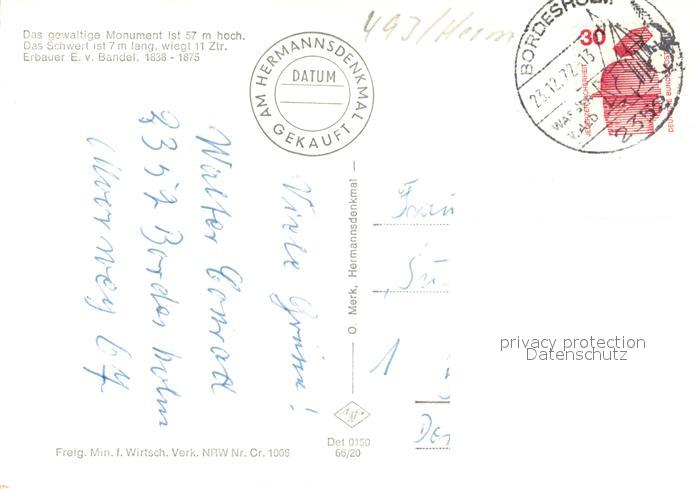 Das gewaltige Monument ist 57 m hoch.
Das Schwert ist 7 m lang, wiegt 11 Ztr.
Erbauer E. v. Bandel. 1838 - 1875
493/Herm
AM HERMANNSDENKMAL
DATUM
GEKAUFT
BORDESHOLM
23.12.72-13
2352
30
DEUTSCHE BUNDESPOST
Viele Grüsse!
Walter Conrad
2352 Bordesholm
Moorweg 67
O. Merk, Hermannsdenkmal
Frau
1
privacy protection
Datenschutz
Freig. Min. f. Wirtsch. Verk. NRW Nr. Cr. 1006
Det 0150
66/20